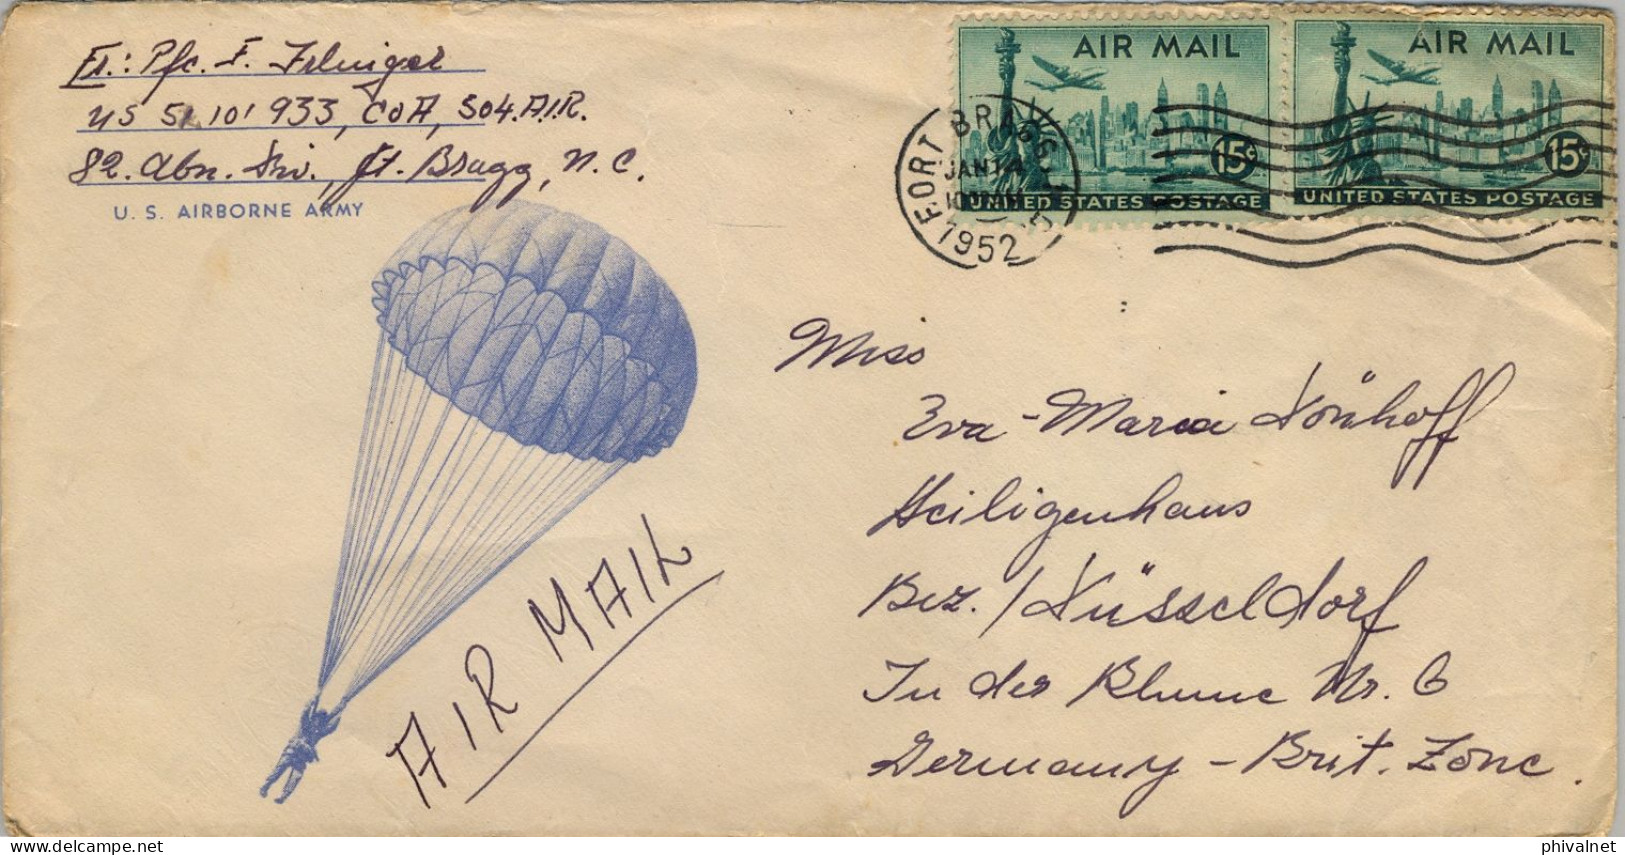 Fr.: Pfc. F.
US 51 101 933, Co A, 504. A.I.R.
82. Abn. Div., Ft. Bragg, N.C.
U. S. AIRBORNE ARMY
AIR MAIL
15¢
UNITED STATES POSTAGE
AIR MAIL
15¢
UNITED STATES POSTAGE
FORT BRAGG
JAN 14
1952
Miss
Eva-Maria Dönhoff
Heiligenhaus
Bez. / Düsseldorf
In der Blume Nr. 6
Germany - Brit. Zone.
AIR MAIL
delcampe.net
phivalnet